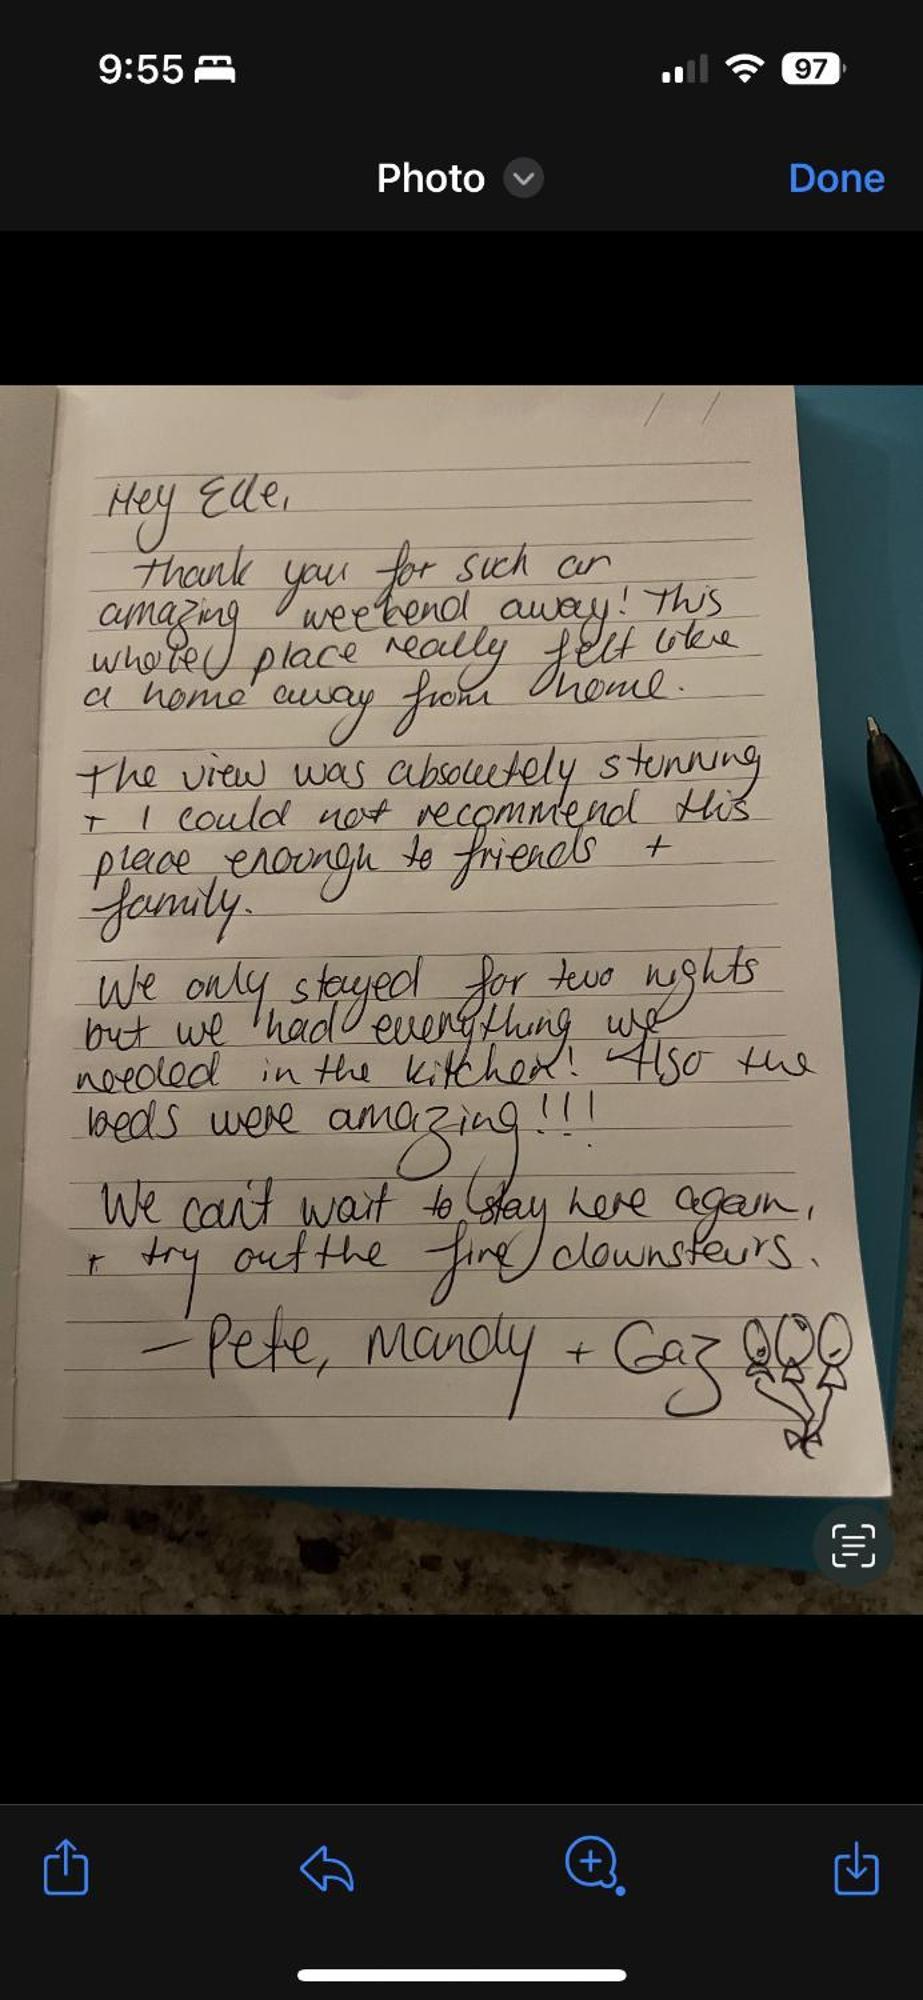 9:55
97
Photo
Done
Hey Elle,
Thank you for such an
amazing weekend away! This
whole place really felt like
a home away from home.
The view was absolutely stunning
+ I could not recommend this
place enough to friends +
family.
We only stayed for two nights
but we had everything we
needed in the kitchen! Also the
beds were amazing!!!
We can't wait to stay here again,
+ try out the fire downstairs.
- Pete, Mandy + Gaz